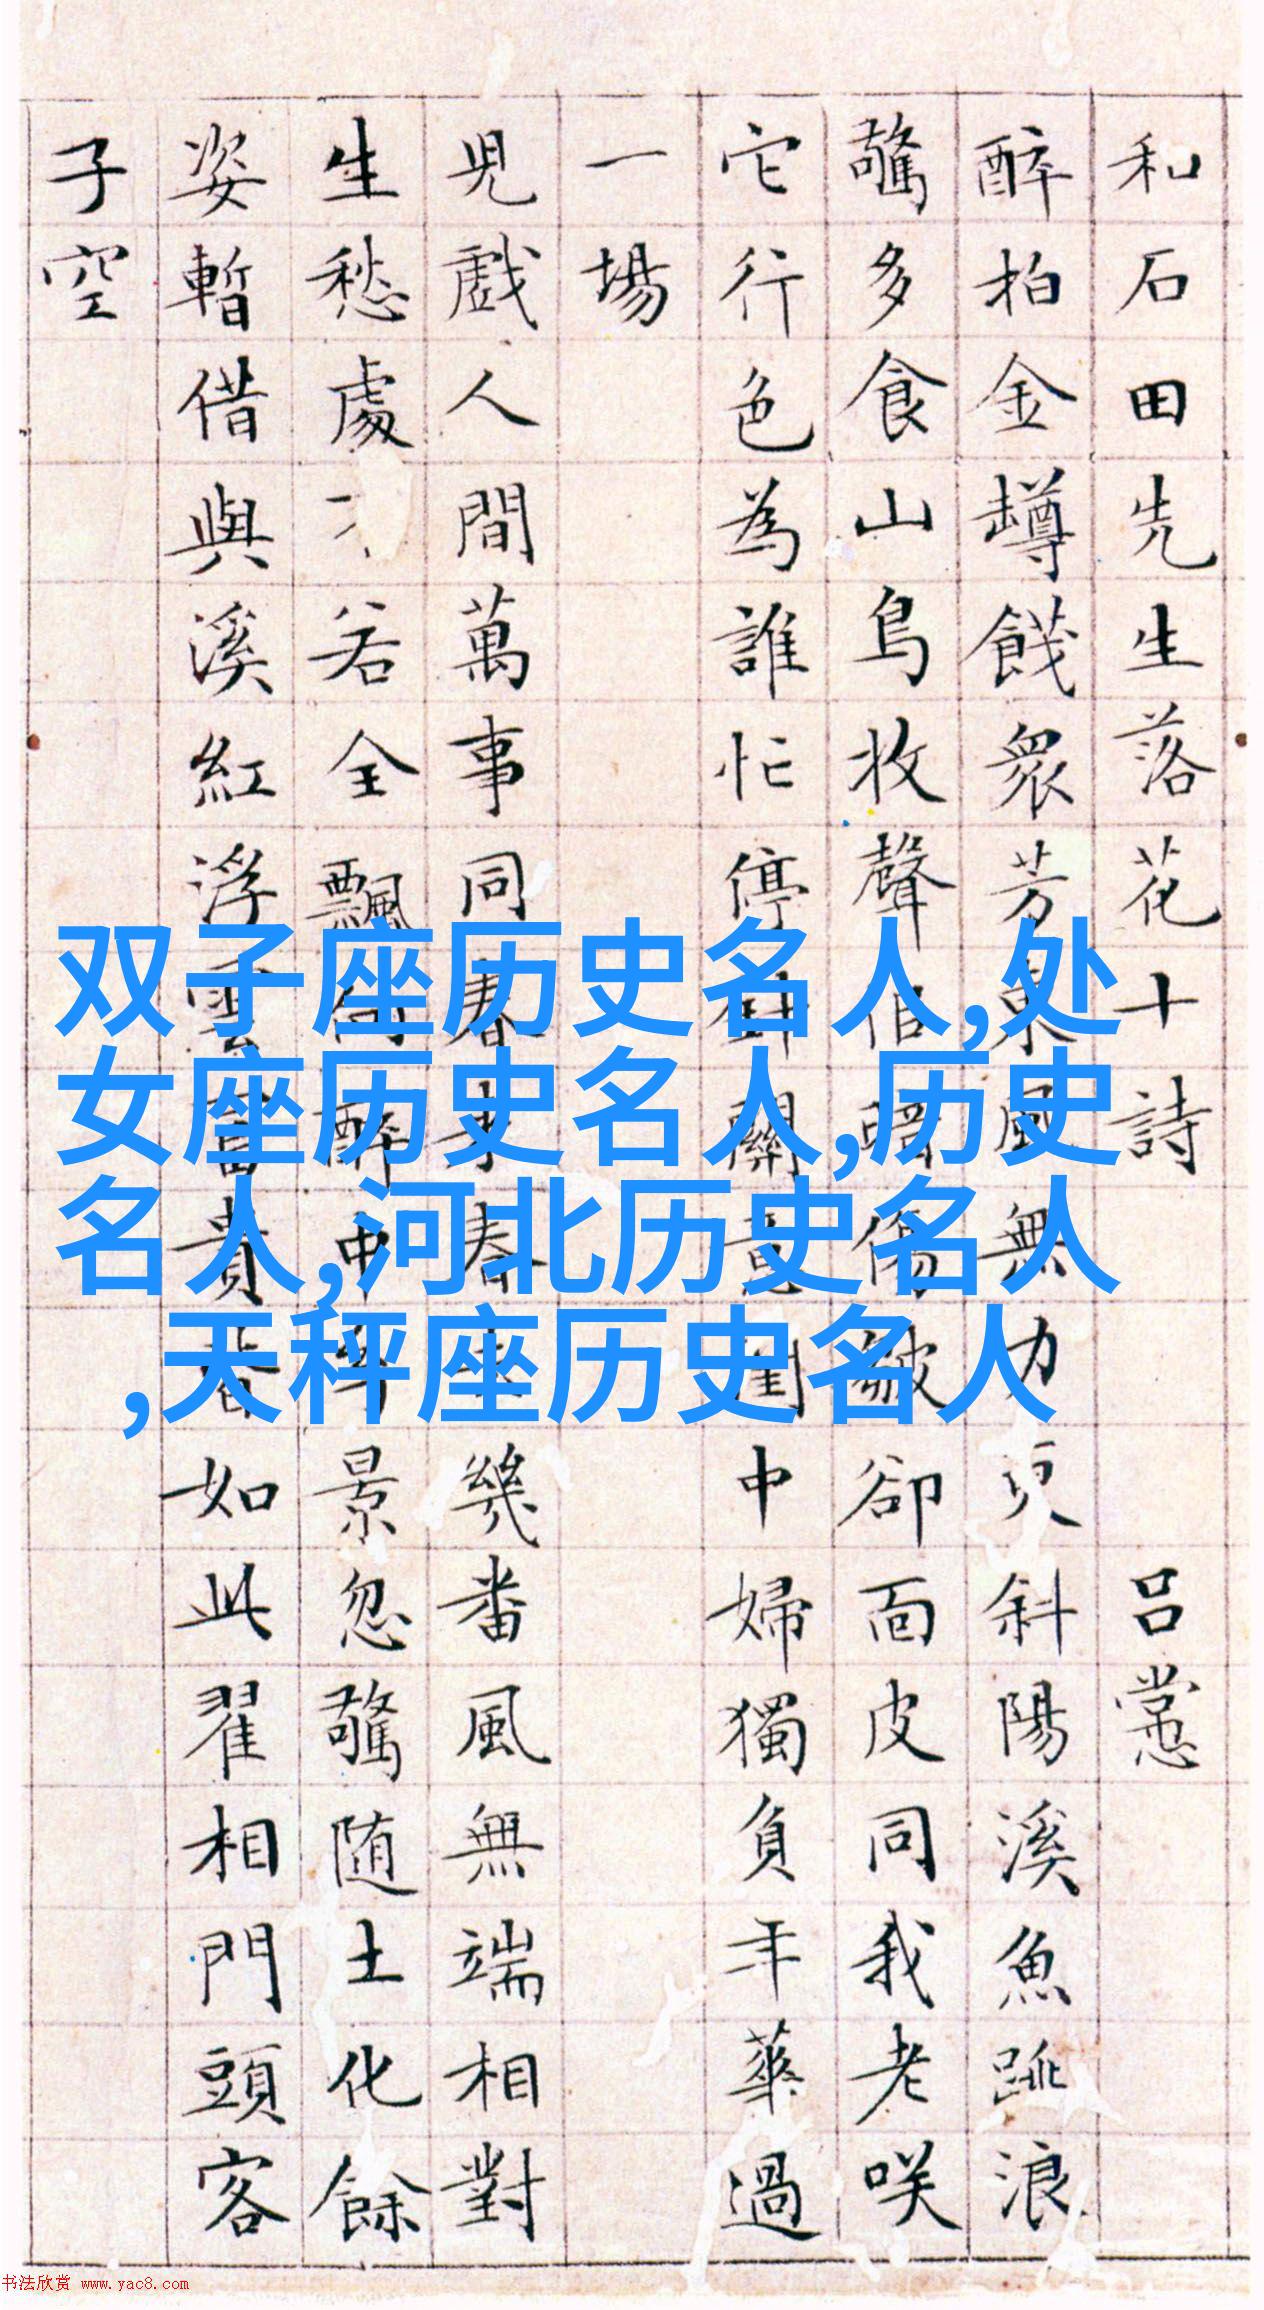 和石田先生落花十詩 呂㦂
醉拍金罇餞衆芳東風無力更斜陽溪魚跳浪
驚多食山鳥收聲怕聽傷皺卻面皮同我老咲
它行色為誰忙停針關意閨中婦獨負年華過
一場
兒戲人間萬事同春來春幾番風無端相對
生愁處不若全飄向醉中午景忽驚随土化餘
姿暫借與溪紅浮雲富貴春如此翟相門頭客
子空
双子座历史名人,处
女座历史名人,历史
名人,河北历史名人
,天秤座历史名人
书法欣赏 www.yac8.com